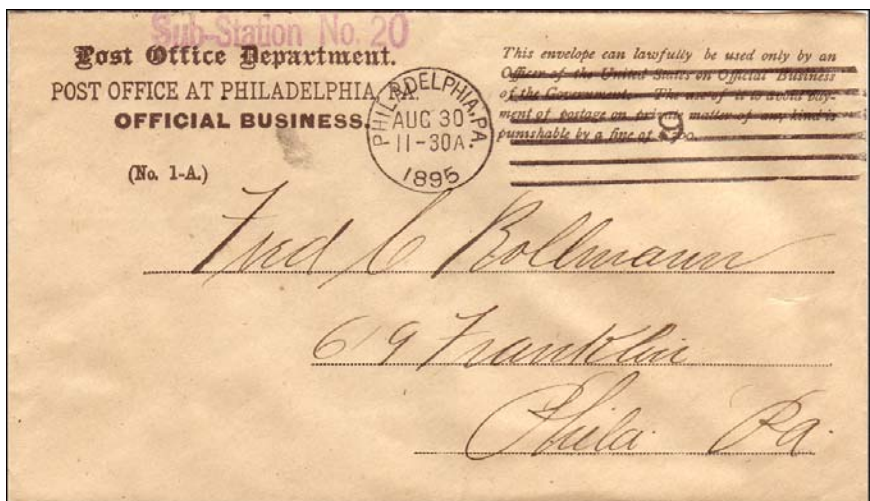 Sub-Station No. 20
Post Office Department.
POST OFFICE AT PHILADELPHIA, PA.
OFFICIAL BUSINESS.
(No. 1-A.)
PHILADELPHIA, PA.
AUG 30
11-30A.
1895
This envelope can lawfully be used only by an
Officer of the United States on Official Business
of the Government. The use of it to avoid pay-
ment of postage on private matter of any kind is
punishable by a fine of $300.
9
Fred C Bollmann
619 Franklin
Phila. Pa.